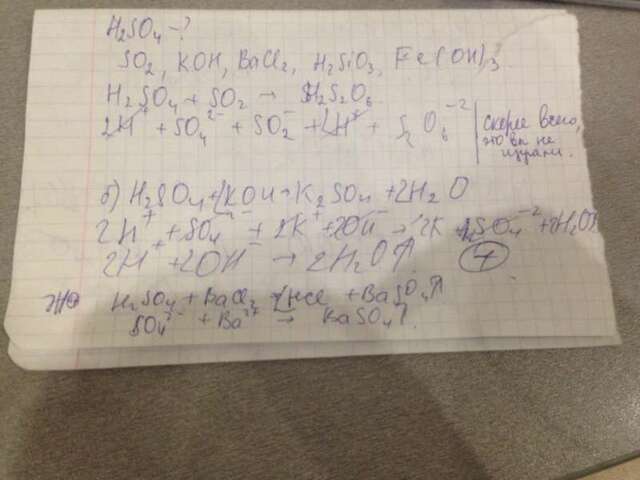 H₂SO₄ - ?
SO₂, KOH, BaCl₂, H₂SiO₃, Fe(OH)₃
H₂SO₄ + SO₂ → H₂S₂O₆
2H⁺ + SO₄²⁻ + SO₂ 2H⁺ + S₂O₆⁻² скорее всего, это вы не
б) H₂SO₄ + 2KOH → K₂SO₄ + 2H₂O
2H⁺ + SO₄²⁻ + 2K⁺ + 2OH⁻ → 2K SO₄⁻² + 2H₂O
2H⁺ + 2OH → 2H₂O 
H₂SO₄ + BaCl₂ 2HCl + BaSO₄
SO₄²⁻ + Ba²⁺ = BaSO₄